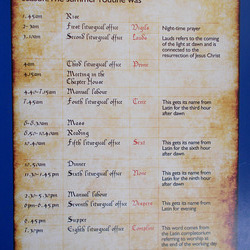 season. The summer routine was
1.45am Rise
2-3am First liturgical office Vigils Night-time prayer
3.10am Second liturgical office Lauds Lauds refers to the coming
of the light at dawn and is
connected to the
resurrection of Jesus Christ
4am Third liturgical office Prime
4.15am Meeting in the
Chapter House
4.40-7.15am Manual labour
7.45am Fourth liturgical office Terce This gets its name from
Latin for the third hour
after dawn
8-8.30am Mass
8.50-10.40am Reading
10.40am Fifth liturgical office Sext This gets its name from
Latin for the sixth hour
after dawn
10.50am Dinner
Sixth liturgical office None This gets its name from
Latin for the ninth hour
after dawn
2.30-5.30pm Manual labour
6pm-6.45pm Seventh liturgical office Vespers This gets its name from
Latin for evening
6.45pm Supper
7.30pm Eighth liturgical office Compline This word comes from the
Latin completorium
referring to worship at the
end of the working day